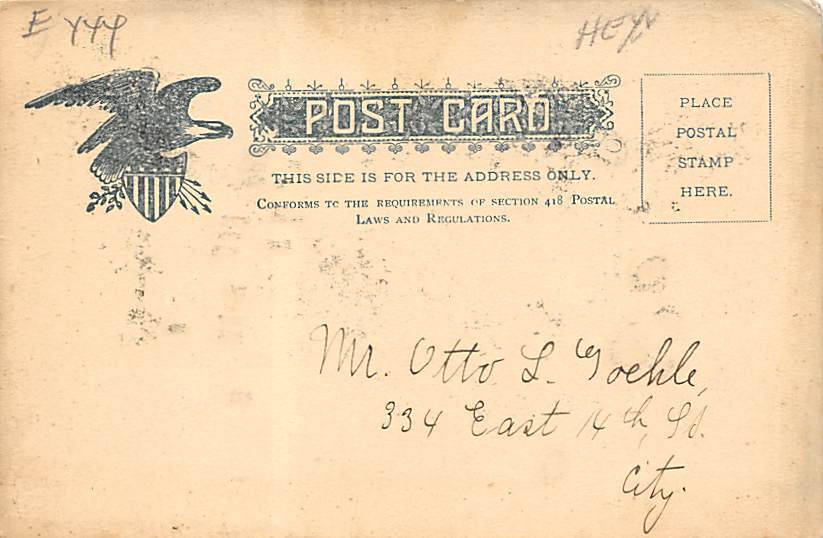 POST CARD
THIS SIDE IS FOR THE ADDRESS ONLY.
CONFORMS TO THE REQUIREMENTS OF SECTION 418 POSTAL
LAWS AND REGULATIONS.
PLACE
POSTAL
STAMP
HERE.
Mr. Otto L. Goehle,
334 East 14th, St.
City.